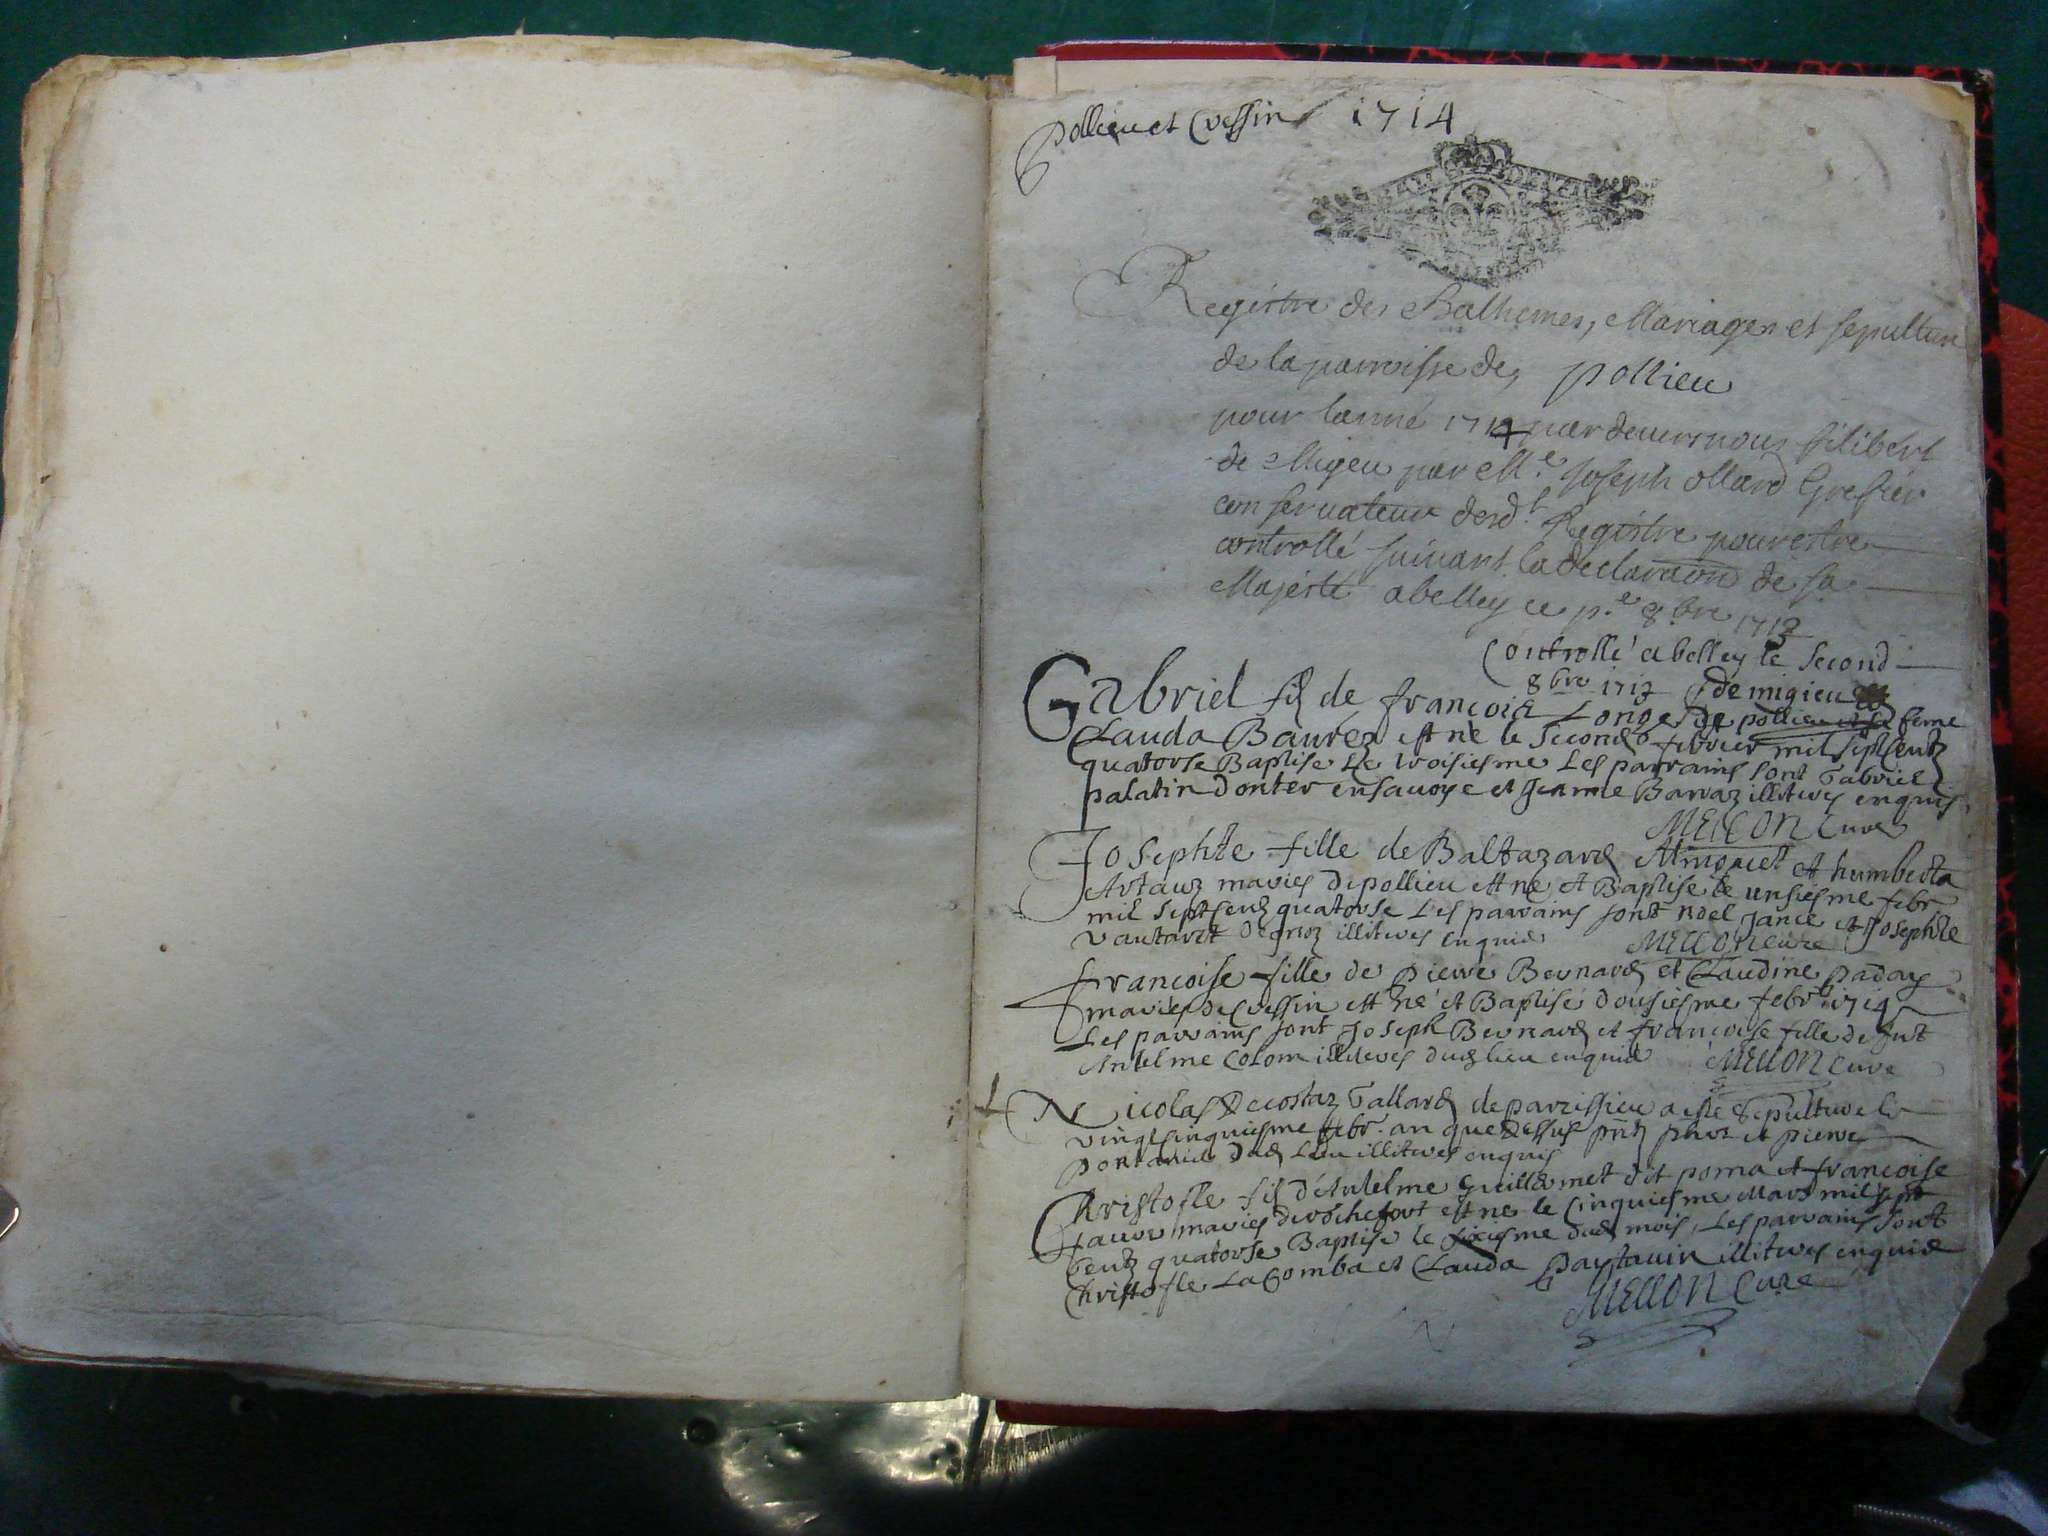 pollieu et Cressin 1714
Registre des Bathemes, Mariages et sepulture
de la parroisse de, pollieu
pour lanné 1714 par devers nous filibert
de Migieu par Me. Joseph ollard Grefier
conservateur desdt. Registre pour estre
controllé suivant la declaraõn de sa
Majesté a belley ce p.e 8.bre 1713
Controllé a belley le second
8bre 1713 demigieu
Gabriel fil de francois Longe de pollieu et sa feme
Clauda est né le second febvrier mil sept centz
quatorse Baptise le troisiesme Les parrains sont Gabriel
palatin donter en savoye et illiteres enquis
MELLON Curé
Josephte fille de Baltazard et humberta
Artaud mariés de pollieu est né et Baptise le unsiesme febr
mil sept centz quatorse Les parrains sont noel Jance et Josephte
illiteres enquis MELLON curé
francoise fille de pierre Bernard et Claudine
mariés de Cressin est né et Baptisé dousiesme febr 1714
Les parrains sont Joseph Bernard et francoise fille de fut
Antelme Colom illiteres dud lieu enquis MELLON Cure
Nicolas Decostaz Gallard de parzissieu a esté sepulture le
vingt sinquiesme febr. an que dessus pñtz et pierre
dud lieu illiteres enquis
Christofle fil d'Antelme Guillermet dit poma et francoise
mariés de rochefort est né le Cinquiesme Mars mil sept
centz quatorse Baptise le sixiesme dud mois, Les parrains sont
Christofle La Comba et Clauda illiteres enquis
MELLON Curé